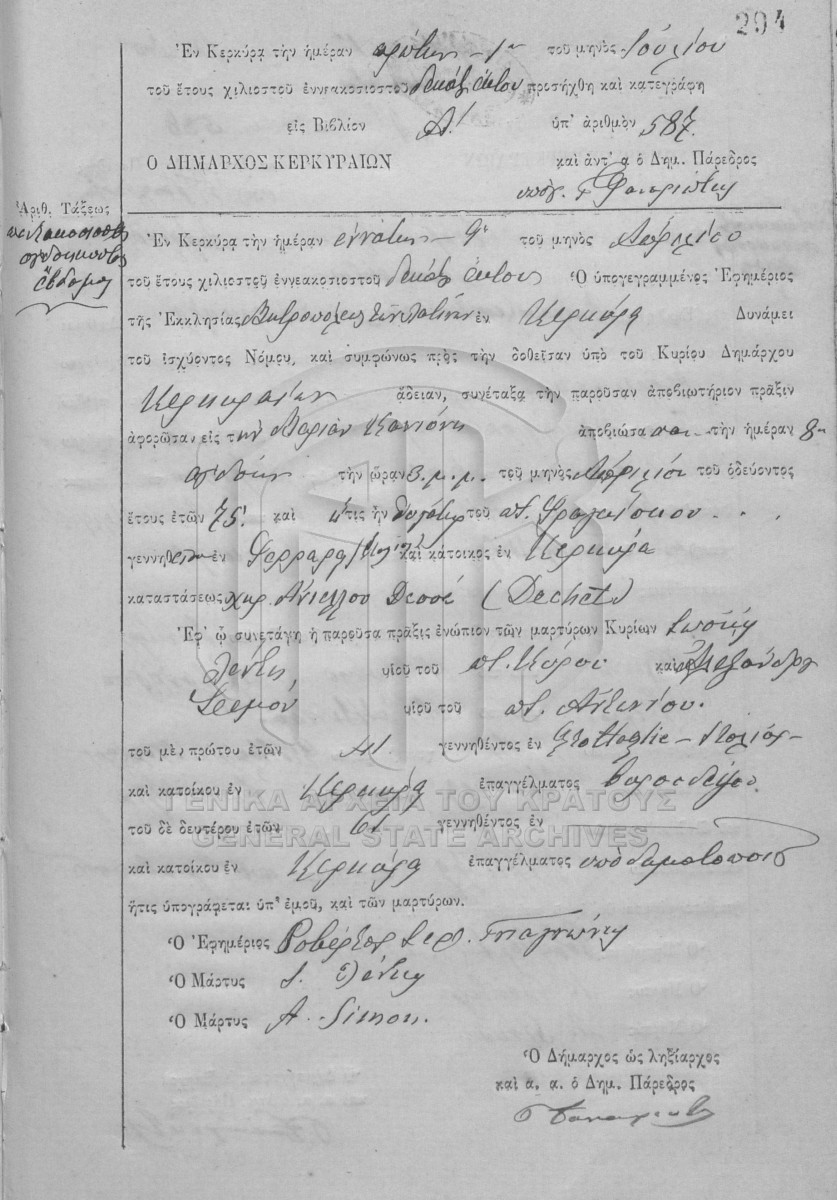 294
Ἐν Κερκύρᾳ τὴν ἡμέραν πρώτην - 1ην τοῦ μηνὸς Ἰουλίου
τοῦ ἔτους χιλιοστοῦ ἐννεακοσιοστοῦ δεκάτου ἕκτου προσήχθη καὶ κατεγράφη
εἰς Βιβλίον Α! ὑπ' ἀριθμὸν 587.
Ὁ ΔΗΜΑΡΧΟΣ ΚΕΡΚΥΡΑΙΩΝ καὶ ἀντ' α ὁ Δημ. Πάρεδρος
ὑπογ.
Ἀριθ. Τάξεως
πεντακοσιοστὸς
ὀγδοηκοστὸς
ἕβδομος
Ἐν Κερκύρᾳ τὴν ἡμέραν ἐννάτην - 9ην τοῦ μηνὸς Ἀπριλίου
τοῦ ἔτους χιλιοστοῦ ἐννεακοσιοστοῦ δεκάτου ἕκτου Ὁ ὑπογεγραμμένος Ἐφημέριος
τῆς Ἐκκλησίας Μητροπόλεως τῶν Λατίνων ἐν Κερκύρᾳ Δυνάμει
τοῦ ἰσχύοντος Νόμου, καὶ συμφώνως πρὸς τὴν δοθεῖσαν ὑπὸ τοῦ Κυρίου Δημάρχου
Κερκυραίων ἄδειαν, συνέταξα τὴν παροῦσαν ἀποβιωτήριον πρᾶξιν
ἀφορῶσαν εἰς τὴν Μαρίαν ἀποβιώσασαν τὴν ἡμέραν 8ην
ὀγδόην τὴν ὥραν 3. μ. μ. τοῦ μηνὸς Ἀπριλίου τοῦ ὁδεύοντος
ἔτους ἐτῶν 75! καὶ ἥτις ἦν θυγάτηρ τοῦ ποτ. Φραγκίσκου . . .
γεννηθεῖσα ἐν Φερράρᾳ καὶ κάτοικος ἐν Κερκύρᾳ
καταστάσεως χήρ. Ἀνιέλλου Δεσσέ (Dechet)
Ἐφ' ᾧ συνετάγη ἡ παροῦσα πρᾶξις ἐνώπιον τῶν μαρτύρων Κυρίων
υἱοῦ τοῦ ποτ. καὶ Ἀλεξάνδρου
Σιμόν υἱοῦ τοῦ ποτ. Ἀντωνίου.
τοῦ μὲν πρώτου ἐτῶν γεννηθέντος ἐν Grottaglie - Ἰταλίας -
καὶ κατοίκου ἐν Κερκύρᾳ ἐπαγγέλματος
τοῦ δὲ δευτέρου ἐτῶν 61 γεννηθέντος ἐν
καὶ κατοίκου ἐν Κερκύρᾳ ἐπαγγέλματος ὑποδηματοποιοῦ
ἥτις ὑπογράφεται ὑπ' ἐμοῦ, καὶ τῶν μαρτύρων.
Ὁ Ἐφημέριος Ροβέρτος
Ὁ Μάρτυς
Ὁ Μάρτυς A. Simon.
Ὁ Δήμαρχος ὡς ληξίαρχος
καὶ α. α. ὁ Δημ. Πάρεδρος
ΓΕΝΙΚΑ ΑΡΧΕΙΑ ΤΟΥ ΚΡΑΤΟΥΣ
GENERAL STATE ARCHIVES